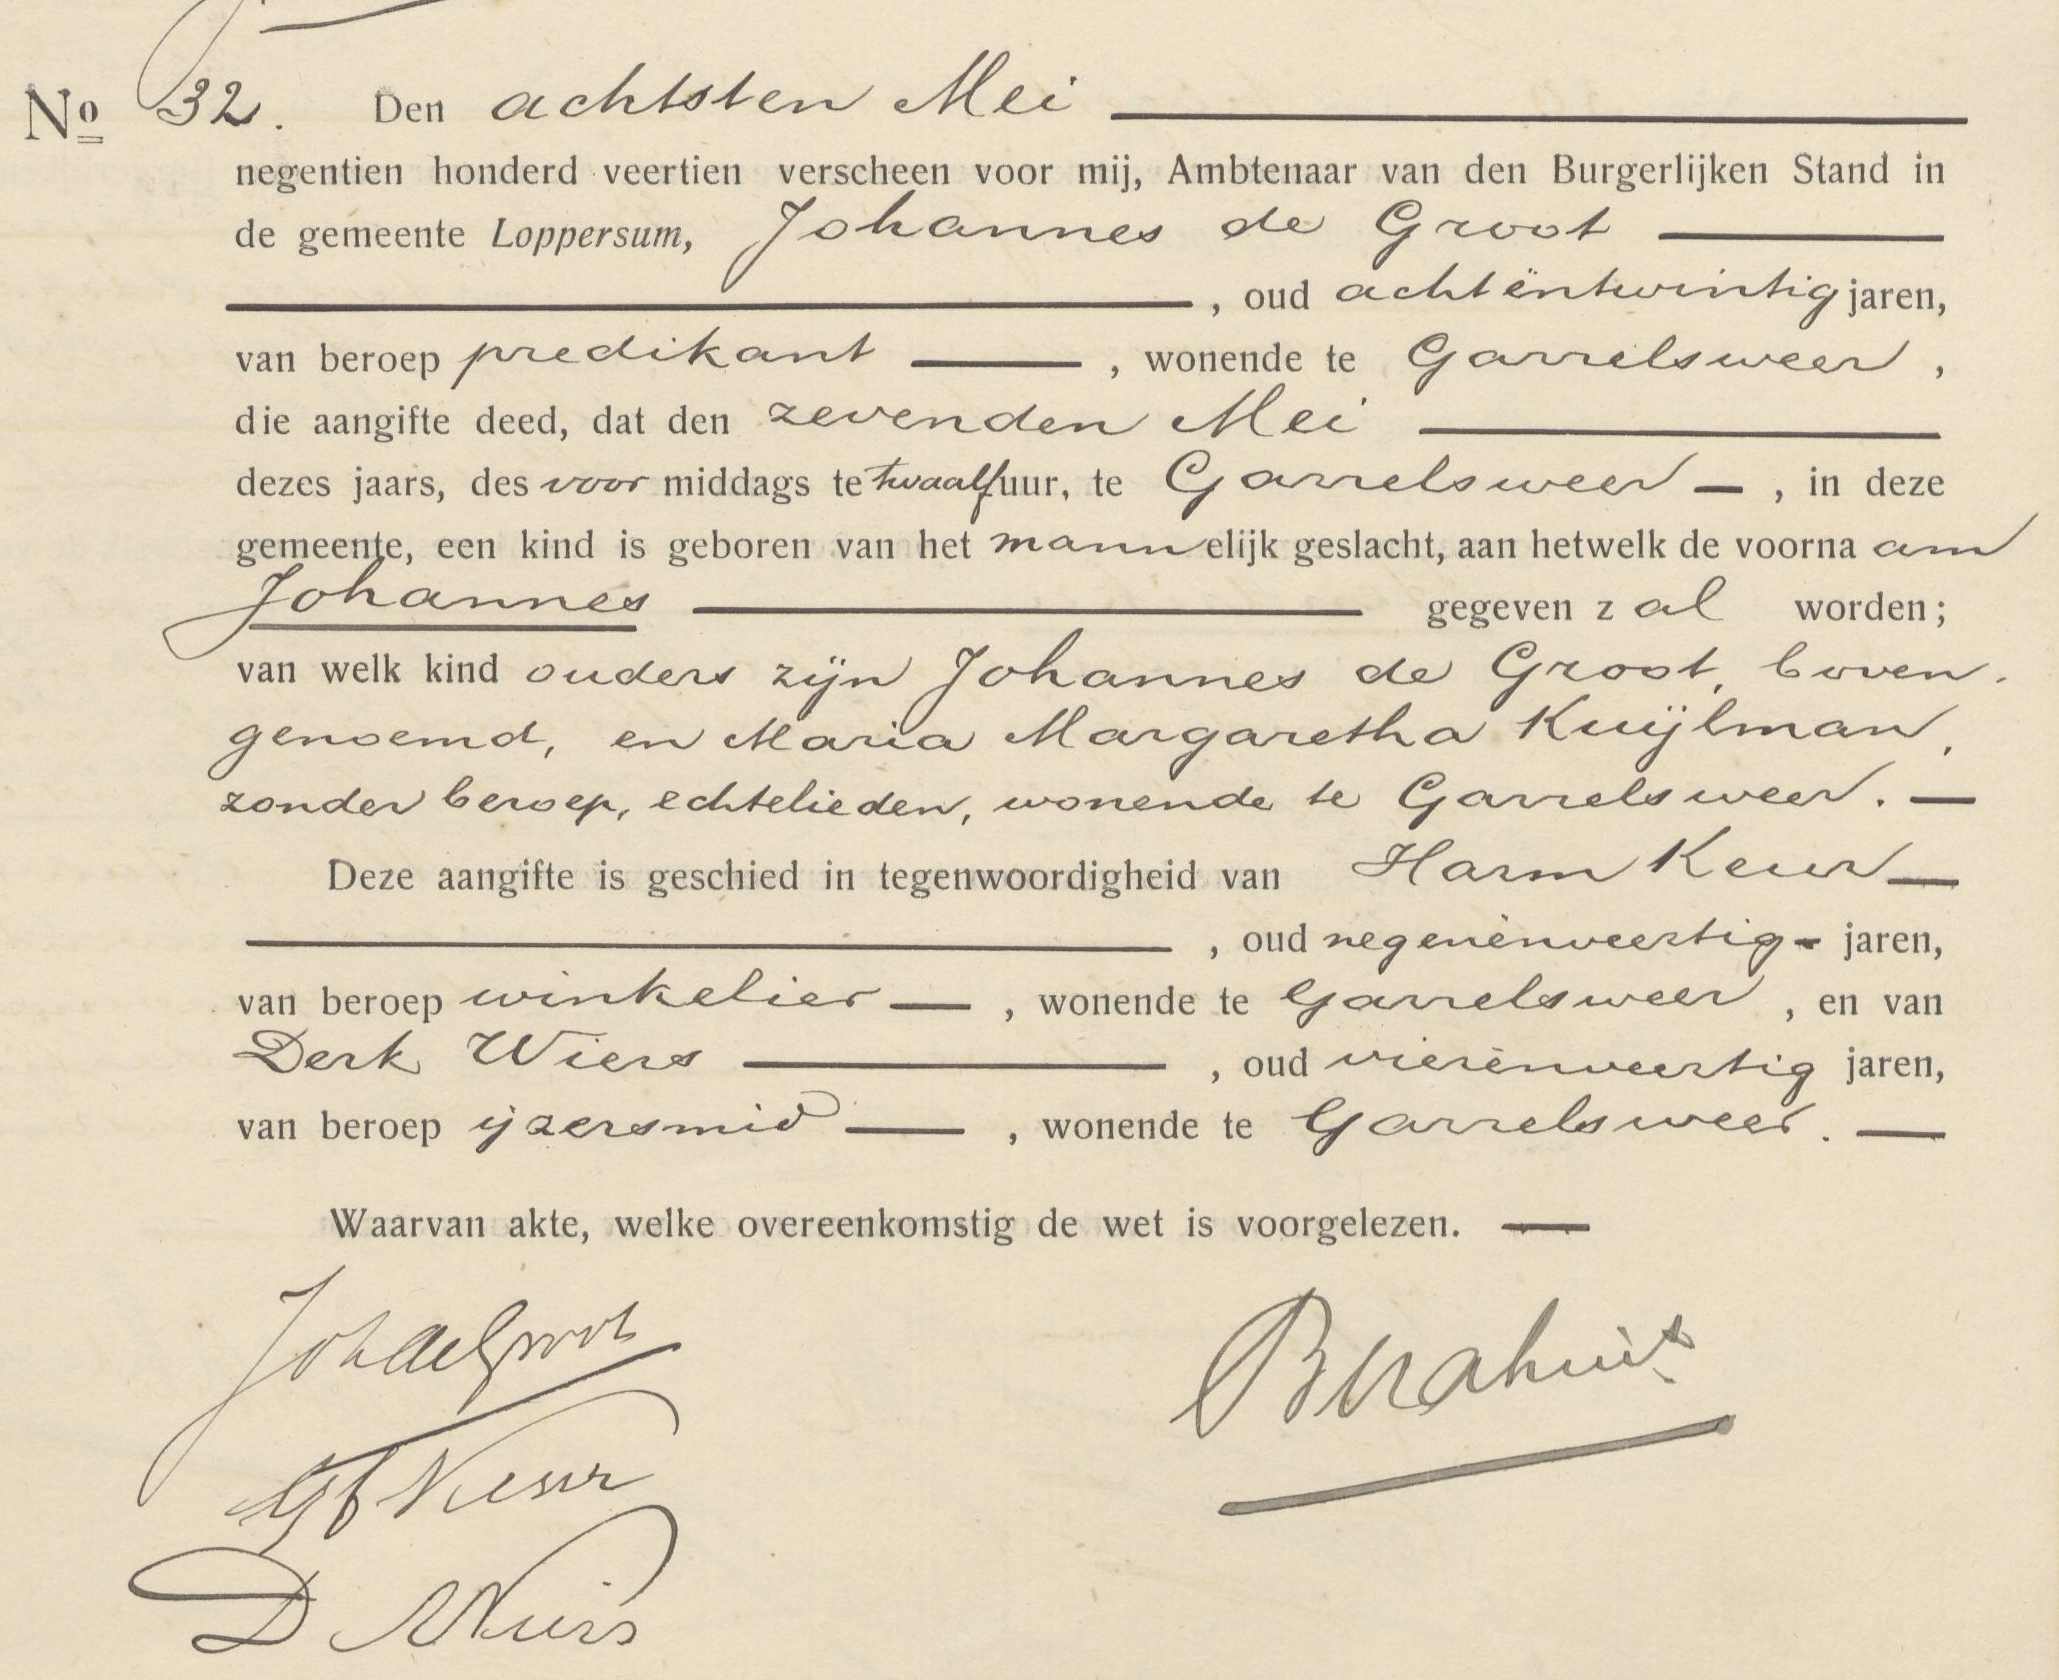 No 32. Den achtsten Mei
negentien honderd veertien verscheen voor mij, Ambtenaar van den Burgerlijken Stand in
de gemeente Loppersum, Johannes de Groot
, oud achtëntwintig jaren,
van beroep predikant , wonende te Garrelsweer ,
die aangifte deed, dat den zevenden Mei
dezes jaars, des voor middags te twaalf uur, te Garrelsweer , in deze
gemeente, een kind is geboren van het mannelijk geslacht, aan hetwelk de voorna am
Johannes gegeven zal worden;
van welk kind ouders zijn Johannes de Groot, boven-
genoemd, en Maria Margaretha Kuijlman,
zonder beroep, echtelieden, wonende te Garrelsweer.
Deze aangifte is geschied in tegenwoordigheid van Harm Keur
, oud negenënveertig jaren,
van beroep winkelier , wonende te Garrelsweer , en van
Derk Wiers , oud vierënveertig jaren,
van beroep ijzersmid , wonende te Garrelsweer.
Waarvan akte, welke overeenkomstig de wet is voorgelezen.
Joh de Groot
H Keur
D Wiers